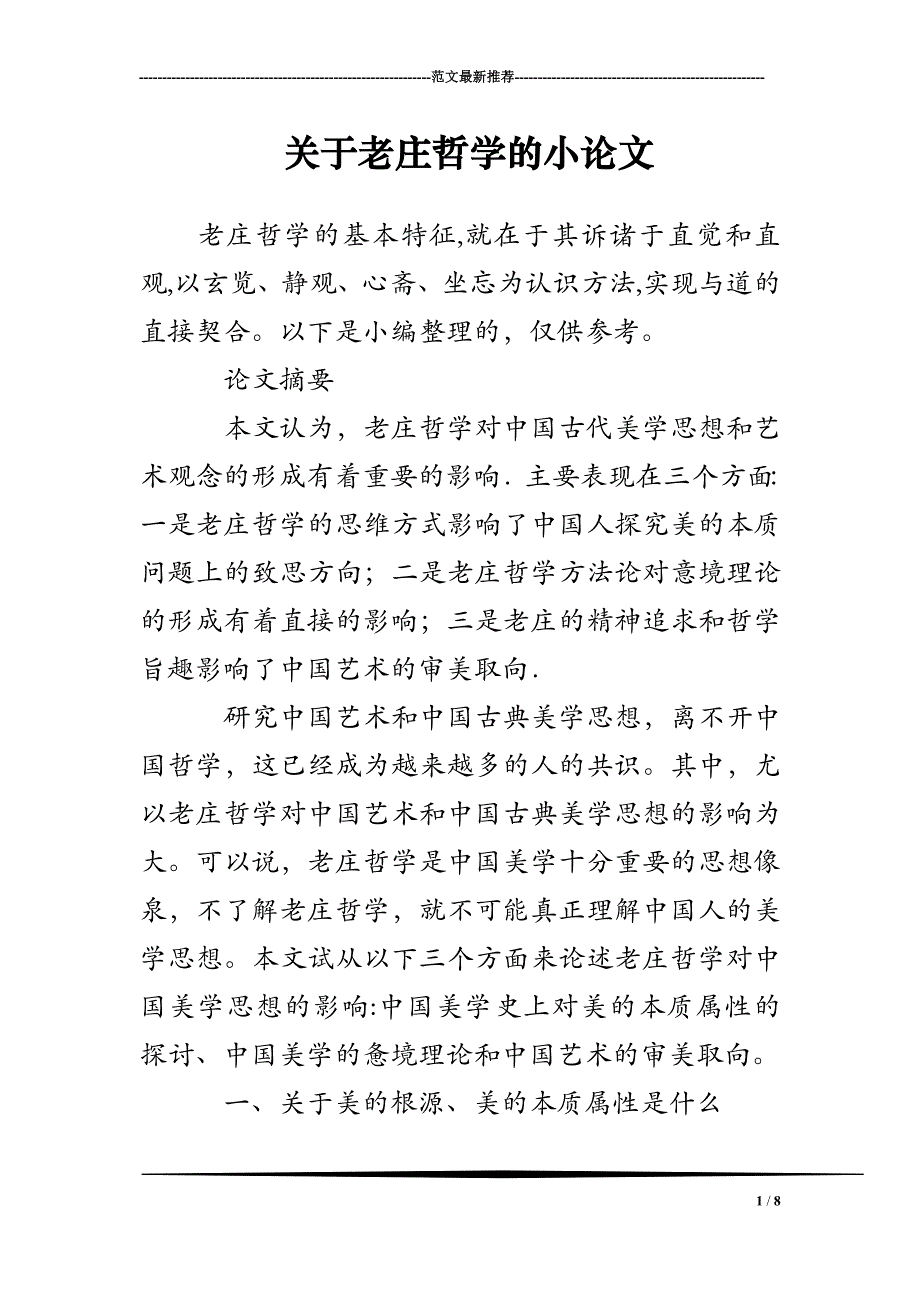 ------------------------------------------------------------范文最新推荐------------------------------------------------------
关于老庄哲学的小论文
老庄哲学的基本特征,就在于其诉诸于直觉和直
观,以玄览、静观、心斋、坐忘为认识方法,实现与道的
直接契合。以下是小编整理的，仅供参考。
论文摘要
本文认为，老庄哲学对中国古代美学思想和艺
术观念的形成有着重要的影响．主要表现在三个方面:
一是老庄哲学的思维方式影响了中国人探究美的本质
问题上的致思方向；二是老庄哲学方法论对意境理论
的形成有着直接的影响；三是老庄的精神追求和哲学
旨趣影响了中国艺术的审美取向．
研究中国艺术和中国古典美学思想，离不开中
国哲学，这已经成为越来越多的人的共识。其中，尤
以老庄哲学对中国艺术和中国古典美学思想的影响为
大。可以说，老庄哲学是中国美学十分重要的思想像
泉，不了解老庄哲学，就不可能真正理解中国人的美
学思想。本文试从以下三个方面来论述老庄哲学对中
国美学思想的影响:中国美学史上对美的本质属性的
探讨、中国美学的惫境理论和中国艺术的审美取向。
一、关于美的根源、美的本质属性是什么
1 / 8